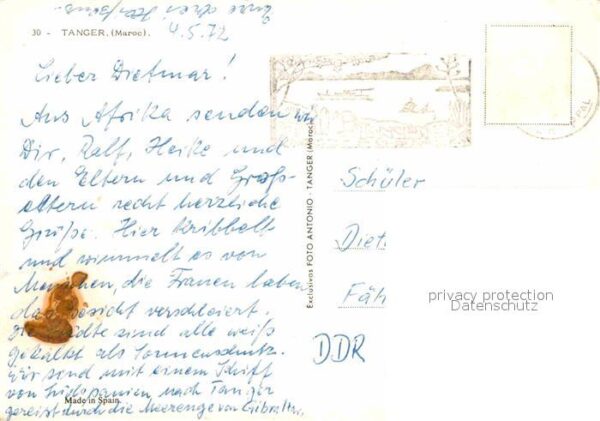 30 - TANGER. (Maroc).
4.5.72
Lieber Dietmar!
Aus Afrika senden wir
Dir, Ralf, Heike und
den Eltern und Groß-
eltern recht herzliche
Grüße. Hier kribbelt
und wimmelt es von
Menschen, die Frauen haben
das Gesicht verschleiert.
Die Städte sind alle weiß
gekalkt als Sonnenschutz.
Wir sind mit einem Schiff
von Südspanien nach Tanger
gereist durch die Meerenge von Gibraltar.
Made in Spain
Exclusivas FOTO ANTONIO - TANGER (Maroc)
PAL
Schüler
Diet
Fäh
DDR
privacy protection
Datenschutz